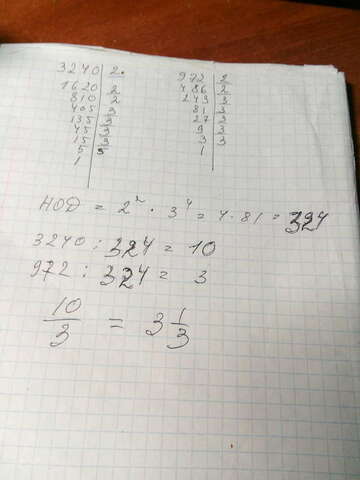 3240 | 2
1620 | 2
810 | 2
405 | 3
135 | 3
45 | 3
15 | 3
5 | 5
1
972 | 2
486 | 2
243 | 3
81 | 3
27 | 3
9 | 3
3 | 3
1
НОД = 2² · 3⁴ = 4 · 81 = 324
3240 : 324 = 10
972 : 324 = 3
10/3 = 3 1/3